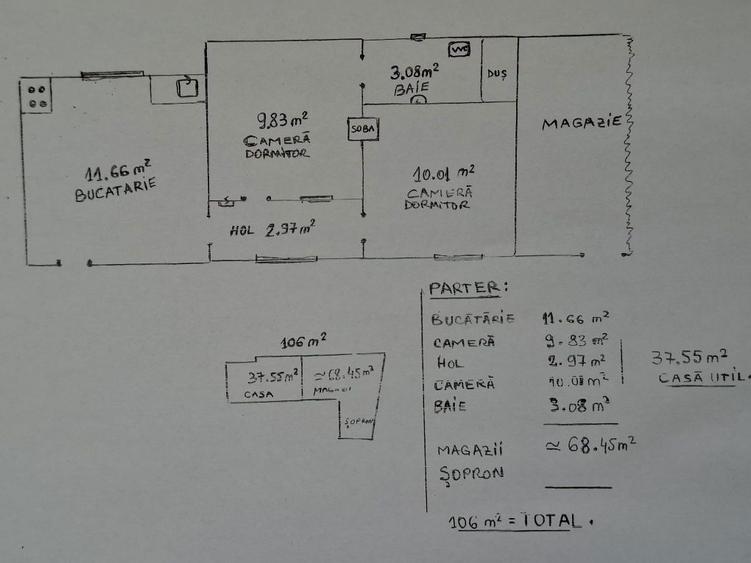 WC
DUȘ
3.08m²
BAIE
9.83 m²
CAMERĂ
DORMITOR
SOBA
MAGAZIE
11.66 m²
BUCATARIE
10.01 m²
CAMERĂ
DORMITOR
HOL 2.97 m²
PARTER:
BUCĂTĂRIE 11.66 m²
CAMERĂ 9.83 m²
HOL 2.97 m²
CAMERĂ 10.01 m²
BAIE 3.08 m²
37.55 m²
CASĂ UTIL.
MAGAZII ≃ 68.45m²
ȘOPRON
106 m² = TOTAL.
106 m²
37.55m²
CASA
≃68.45m²
ȘOPRON